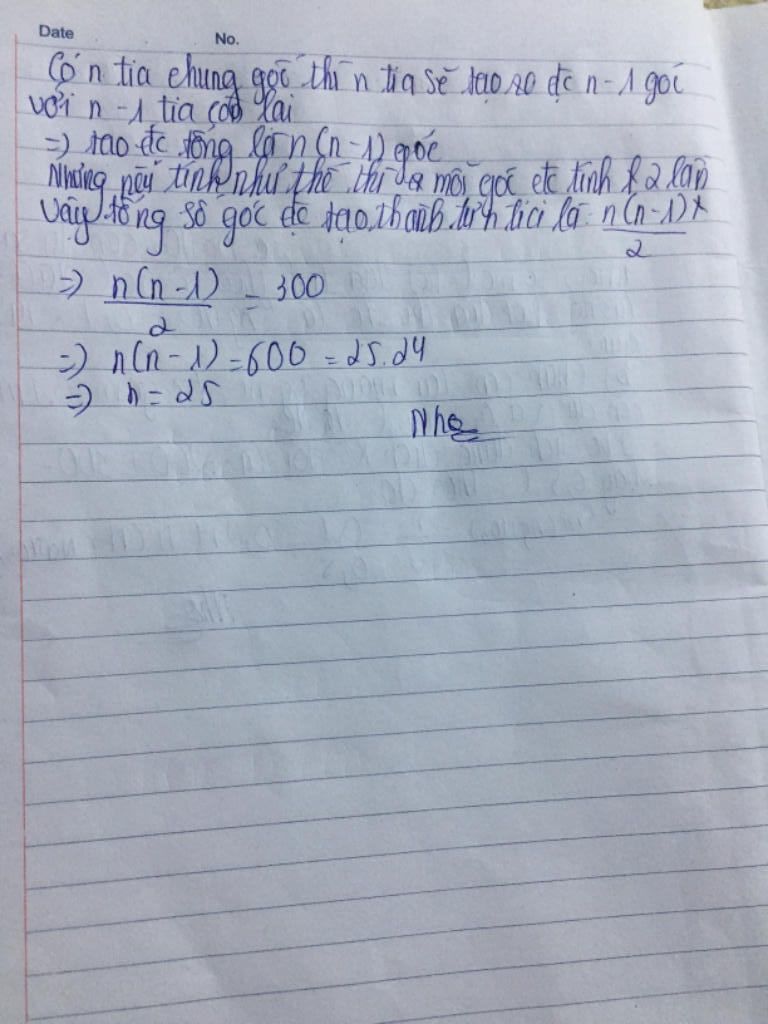 Date No.
Có n tia chung gốc thì n tia sẽ tạo ra đc n-1 góc
với n-1 tia còn lại
=> tạo đc tổng là n(n-1) góc
Nhưng nếu tính như thế thì mỗi góc đc tính 2 lần
Vậy tổng số góc đc tạo thành từ n tia là n(n-1)
2
=> n(n-1) = 300
2
=> n(n-1) = 600 = 25.24
=> n = 25
Nhe